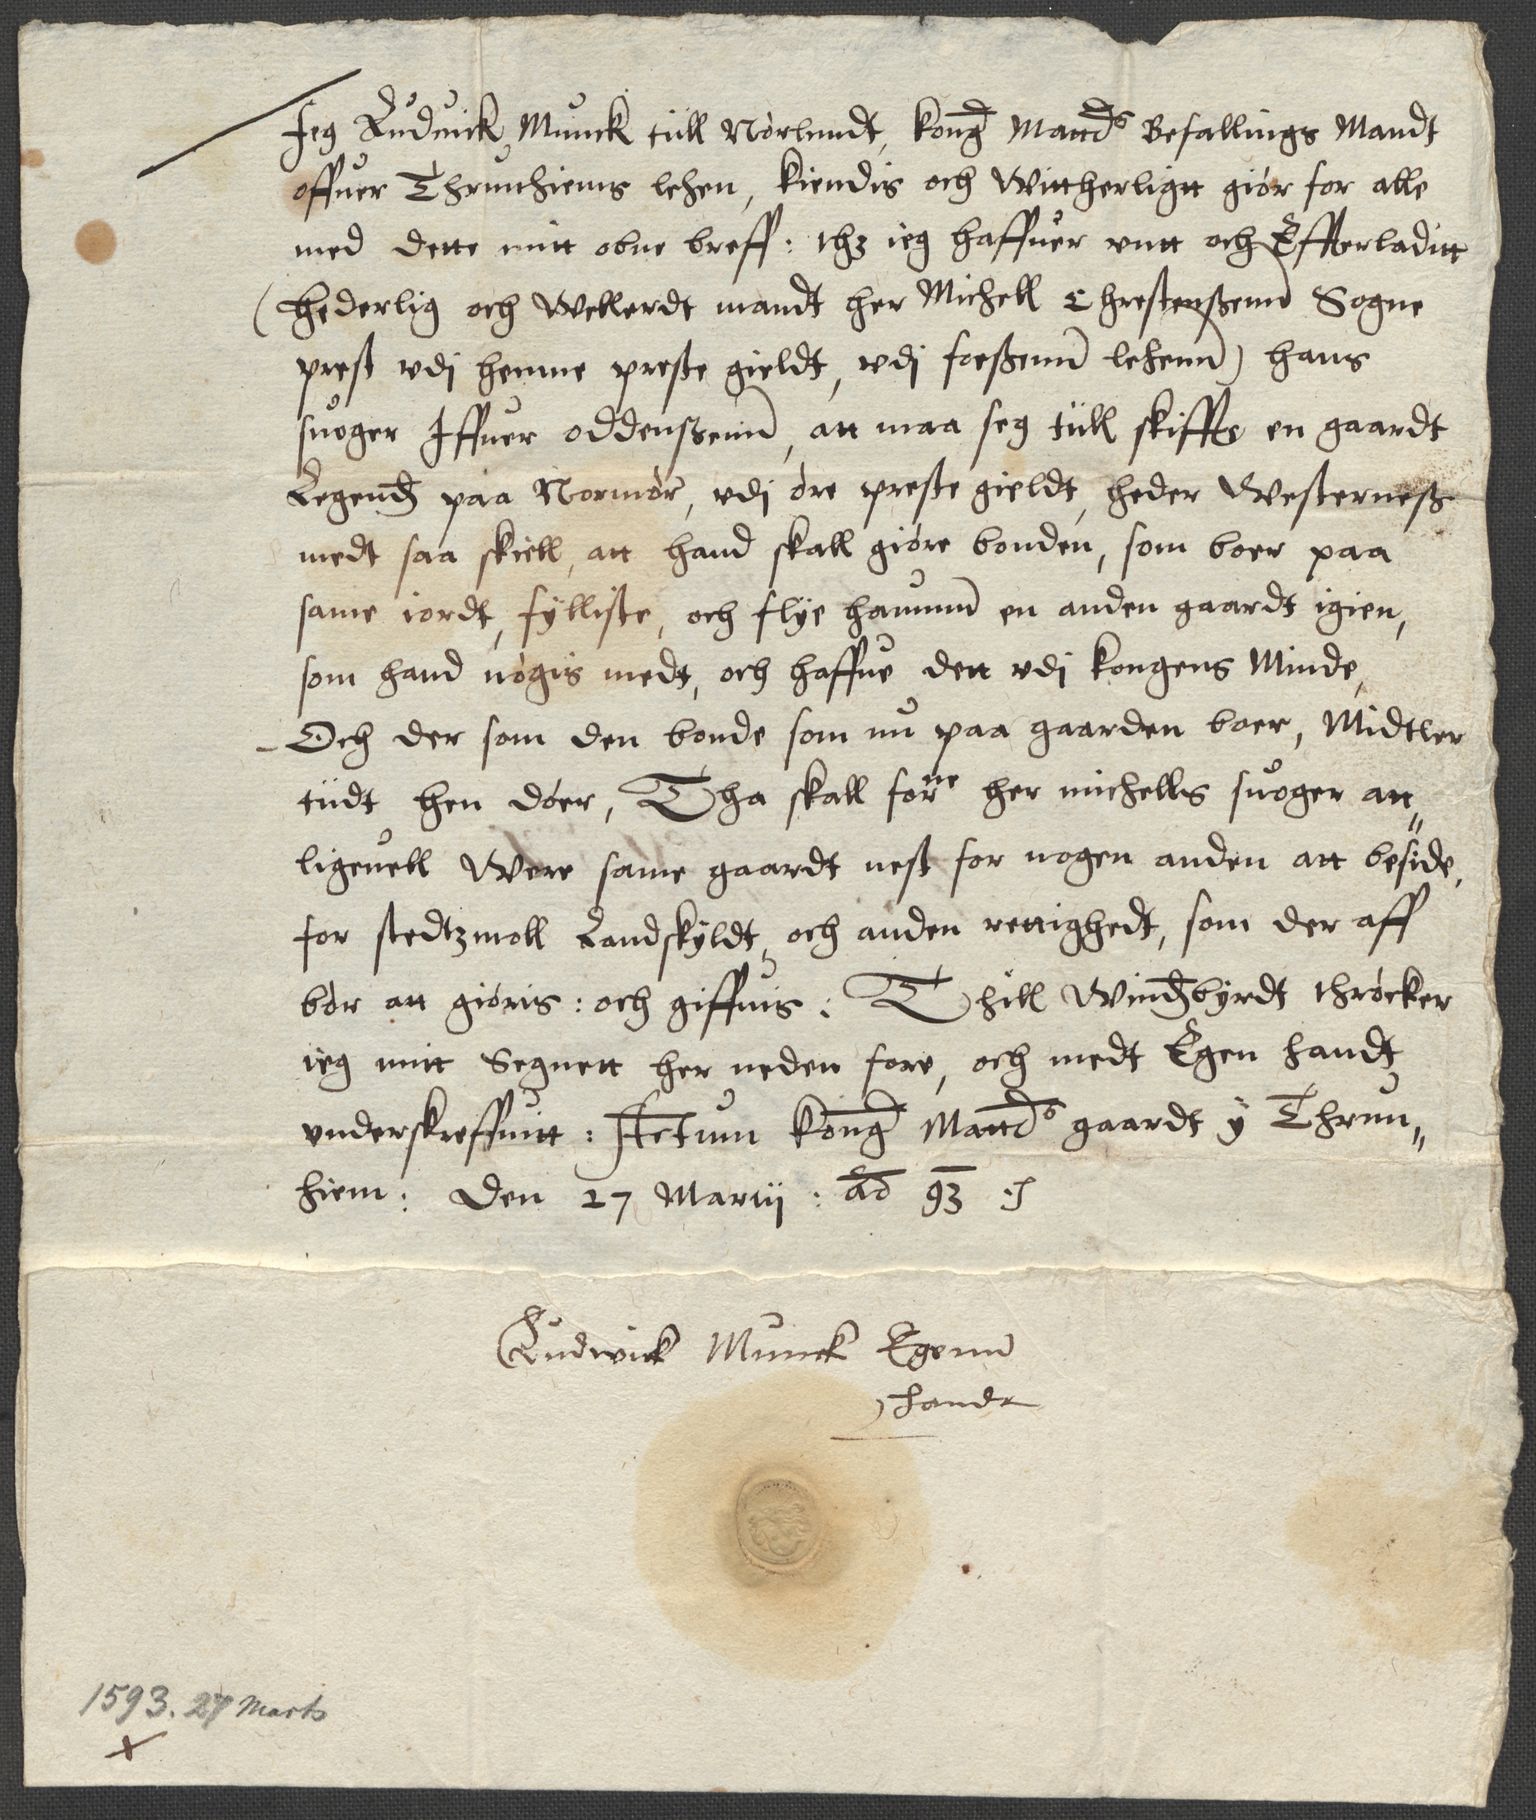 Jeg Luduick Munck till Nørlundt, kong Mattds Befallings Mandt
offuer Thrunhiems lehen, kiendis och Wittherligtt giør for alle
med dette mitt obne breff: thz ieg haffuer untt och Effterladitt
(hederlig och Wellerdt mandt her Michell Chrestenßenn Sogne
prest vdj hemne preste gieldt, vdj foeßenn lehenn) hans
suoger Iffuer oddenßenn, att maa seg till skiffte en gaardt
Legend paa Normør, vdj øre preste gieldt, heder Westerneß
medt saa skiell, att hand skall giøre bonden, som boer paa
same iordt, fylliste, och flÿe hanumm en anden gaardt igien,
som hand nøgis medt, och haffue dett vdj kongens Minde,
Och der som den bonde som nu paa gaarden boer, Midtler
tiidt hen døer, Tha skall forne her michells suoger att„
ligeuell Were same gaardt nest for nogen anden att beside,
for stedtzmoll Landskÿldt, och anden rettighedt, som der aff
bør att giøris: och giffuis: Thill Windbÿrdt thrøcker
ieg mitt Segnett her neden fore, och medt Egen handt
vnderskreffuitt: Actum kong Mattds gaardt ÿ Thrun„
hiem: Den 27 Martij: ad 93 :
Ludwick Munck Egenn
handt
1593. 27 Marts
x